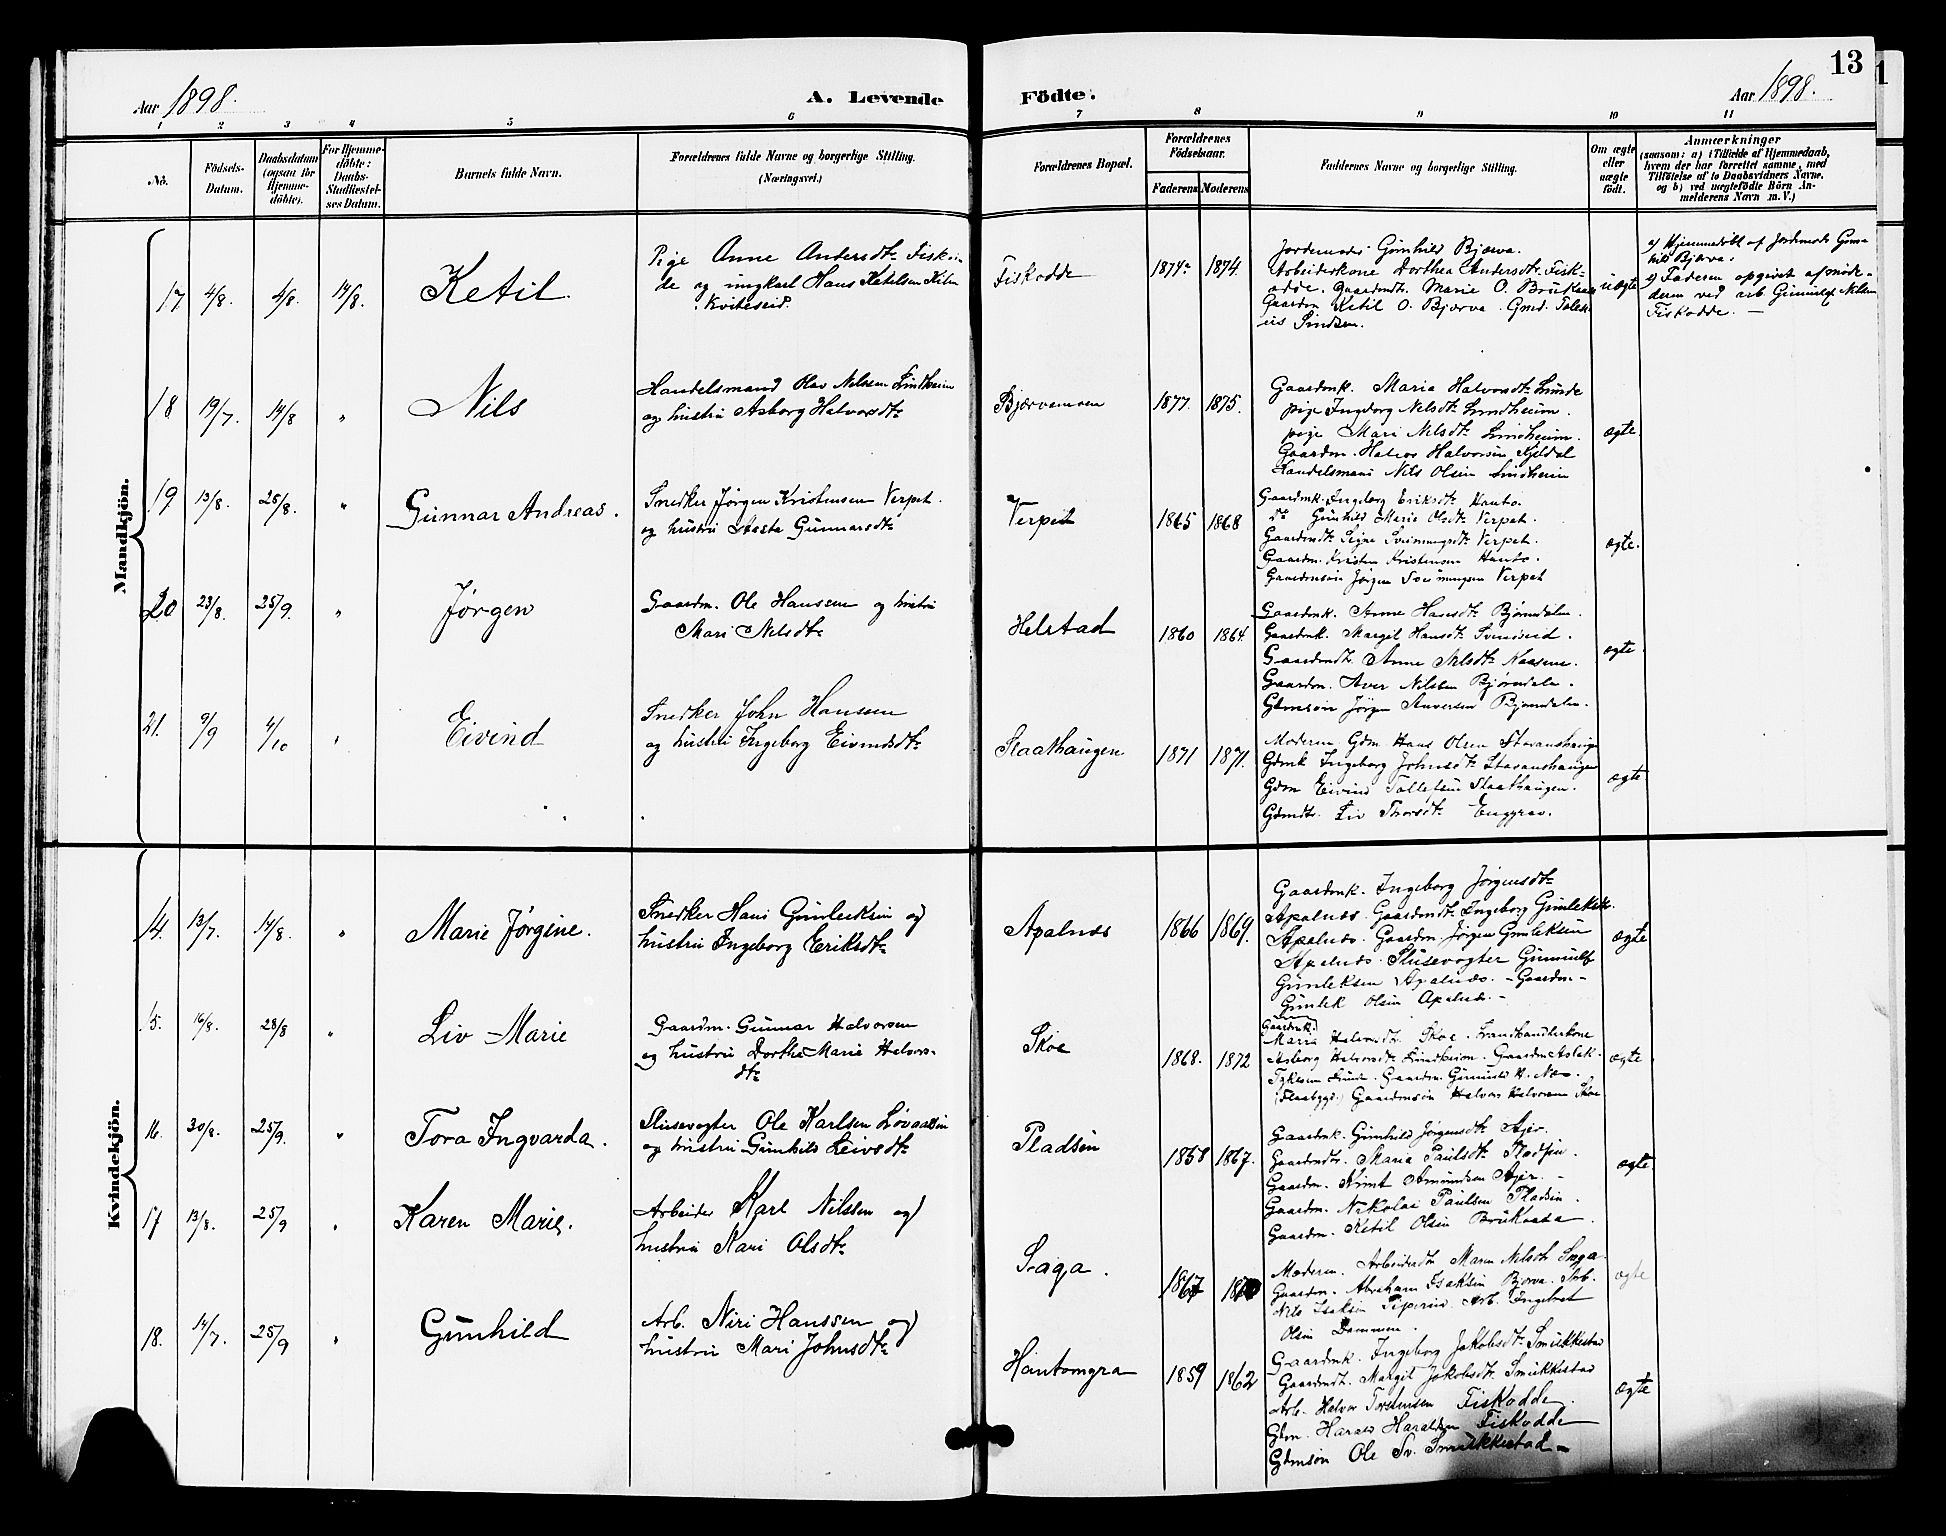 13
Aar 1898.
A. Levende Födte.
Aar 1898.
1 2 3 4 5 6 7 8 9 10 11
No.
Födsels-
Datum.
Daabsdatum
(ogsaa for
Hjemme-
döbte).
For Hjemme-
döbte:
Daabs-
Stadfæstel-
ses Datum.
Barnets fulde Navn.
Forældrenes fulde Navne og borgerlige Stilling.
(Næringsvei.)
Forældrenes Bopæl.
Forældrenes
Födselsaar.
Faderens
Moderens
Faddernes Navne og borgerlige Stilling.
Om ægte
eller
uægte
födt.
Anmærkninger
(saasom: a) i Tilfælde af Hjemmedaab,
hvem der har forrettet samme, med
Tilföielse af to Daabsvidners Navne,
og b) ved uægtefödte Börn An-
melderens Navn m. V.)
Mandkjön.
17 4/8. 4/8. 14/8. Ketil.
Pige Anne Andersdtr Fisko-
de og ungkarl Hans Ketelsen
Kviteseid.
Fiskodde 1874. 1874.
Jordemoder Gunhild Bjærva.
Arbeiderkone Dorthea Andersdtr Fisk-
odde. Gaardmdtr. Marie O. Brukaas
Gaardm Ketil O. Bjærva. Gmd.
uægte
a) Hjemmedöbt af Jordemoder Gun-
hild Bjærva.
b) Faderen opgivet af mode-
deren ved arb. Gunnulf Nilsen
Fiskodde. —
18 19/7. 14/8 " Nils
Handelsmand Olav Nilssen Lindheim
og hustru Asborg Halvorsdtr
Bjærvamoen 1877. 1875.
Gaardmk. Maria Halvorsdtr Lunde
pige Ingeborg Nilsdtr Lindheim.
pige Mari Nilsdtr Lindheim.
Gaardm. Halvor Halvorsen Kjeldal
Handelsmand Nils Olsen Lindheim
ægte.
19 13/8. 28/8. " Gunnar Andreas.
Snedker Jørgen Kristensen Verpet.
og hustru Aaste Gunnarsdtr
Verpet 1865 1868
Gaardmk. Ingeborg Eriksdtr Hauto.
do Gunhild Marie Olsdtr Verpet.
Gaardmdtr Signe Sveinungsdtr Verpet.
Gaardm. Kristen Kristensen Hauto.
Gaardmsön Jørgen Sveinungsen Verpet
ægte.
20 23/8. 25/9. " Jørgen
Gaardm. Ole Hanssen og hustru
Mari Nilsdtr
Helstad 1860 1864.
Gaardmk. Anne Hansdtr Bjørndalen.
Gaardmk. Margit Hansdtr Svenseid.
Gaardmdtr. Anne Nilsdtr Kaasene.
Gaardm. Aver Nilssen Bjørndalen.
Gdmsön Jörgen Anversen Bjørndalen.
ægte
21. 9/9 4/10 " Eivind
Snedker John Hanssen
og hustru Ingeborg Eivindsdtr
Slaathaugen 1871 1871.
Moderen Gdm Hans Olsen Stavanshaugen
Gdmk Ingeborg Johnsdtr Stavanshaugen
Gdm Eivind Tollefsen Slaathaugen.
Gdmdtr. Liv Thorsdtr Enggrav.
ægte
Kvindekjön.
14. 13/7. 14/8. " Marie Jørgine.
Snedker Hans Gunleiksen og
hustru Ingeborg Eriksdtr
Apalnæs 1866 1869.
Gaardmk. Ingeborg Jørgensdtr
Apalnæs. Gaardmdtr. Ingeborg Gunleiksdtr.
Apalnæs. Gaardm. Jörgen Gunleksen
Apalnæs. Slusevogter Gunnulf
Gunleksen Apalnæs. – Gaardm –
Gunlek Olsen Apalnæs. –
ægte
15. 16/8. 28/8 " Liv Marie
Gaardm. Gunnar Halvorsen
og hustru Dorthe Marie Halvors-
dtr
Skoe 1868. 1872
Gaardmk.
Maria Halvorsdtr. Skoe. Landhandlerkone
Asborg Halvorsdtr Lindheim. Gaardm Aslak
Lunde. Gaardm. Gunnuld H. Næs.
(Flaabygd.) Gaardmsön Halvor Halvorsen Skoe
ægte.
16. 30/8. 25/9. " Tora Ingvarda.
Slusevogter Ole Karlsen Lövaasen
og hustru Gunhild Leivsdtr
Pladsen 1858 1867.
Gaardmk. Gunhild Jørgensdtr Ajer.
Gaardmdtr. Maria Paulsdtr Pladsen.
Gaardm. Knut Amundsen Ajer. –
Gaardm. Nikolai Paulsen Pladsen.
Gaardm. Ketil Olsen Brukaasa.
ægte
17 13/8. 25/9 " Karen Marie.
Arbeider Karl Nilssen og
hustru Kari Olsdtr
Saga. 1867
Moderen. Arbeiderdtr Maren Nilsdtr Saga.
Gaardm. Abraham Isaksen Bjerva. Arb.
Nils Isaksen Piperud. Arb. Ingebret
Olsen Dammen.
ægte
18. 14/7. 25/9 " Gunhild
Arb. Niri Hanssen og
hustru Mari Johnsdtr
Hantomgra 1859 1862
Gaardmk. Ingeborg Jakobsdtr. Smukkestad
Gaardmdt. Margit Jakobsdtr. Smukkestad
Arb. Halvor Torstensen Fiskodde.
Gdm. Harald Haraldsen Fiskodde
Gdmsön Ole Sv. Smukkestad –
ægte